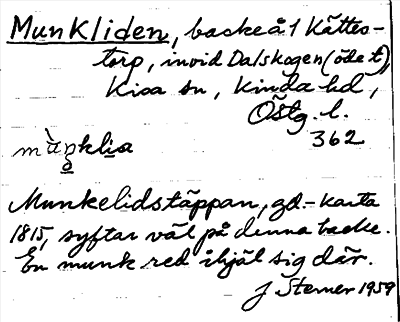 Munkliden, backe å 1 Kättes-
torp, invid Dalskogen (öde t),
Kisa sn, Kinda hd,
Östg. l.
362
mùŋkli̱a
Munkelidstäppan, gd.-karta
1815, syftar väl på denna backe.
En munk red ihjäl sig där.
J Sterner 1959